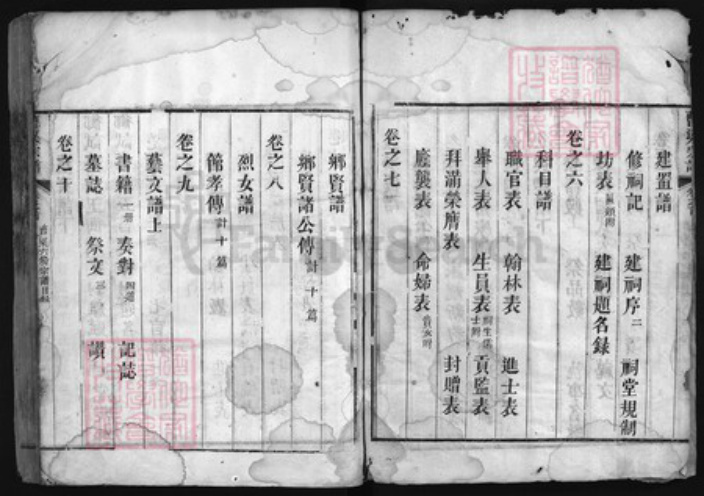 建置譜
修祠記 建祠序二 祠堂規制
坊表 建祠題名錄
卷之六
科目譜
職官表 翰林表 進士表
舉人表 生員表 貢監表
拜滿榮膺表 封贈表
廕襲表 命婦表
卷之七
鄉賢譜
鄉賢諸公傳計十篇
卷之八
烈女譜
節孝傳計十篇
卷之九
藝文譜上
書籍 奏對 記誌
墓誌 祭文
卷之十
FamilySearch